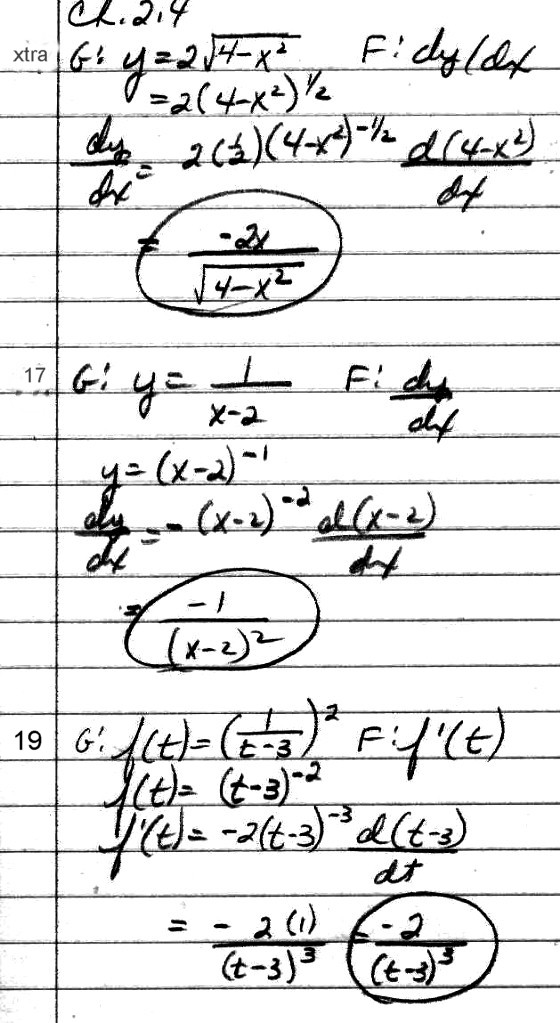 Ch. 2.4
xtra G: y = 2√(4-x²) F: dy/dx
= 2(4-x²)^(1/2)
dy/dx = 2(1/2)(4-x²)^(-1/2) d(4-x²)/dx
= -2x/√(4-x²)
17 G: y = 1/(x-2) F: dy/dx
y = (x-2)^(-1)
dy/dx = -(x-2)^(-2) d(x-2)/dx
= -1/(x-2)²
19 G: f(t) = (1/(t-3))² F: f'(t)
f(t) = (t-3)^(-2)
f'(t) = -2(t-3)^(-3) d(t-3)/dt
= -2(1)/(t-3)³ = -2/(t-3)³